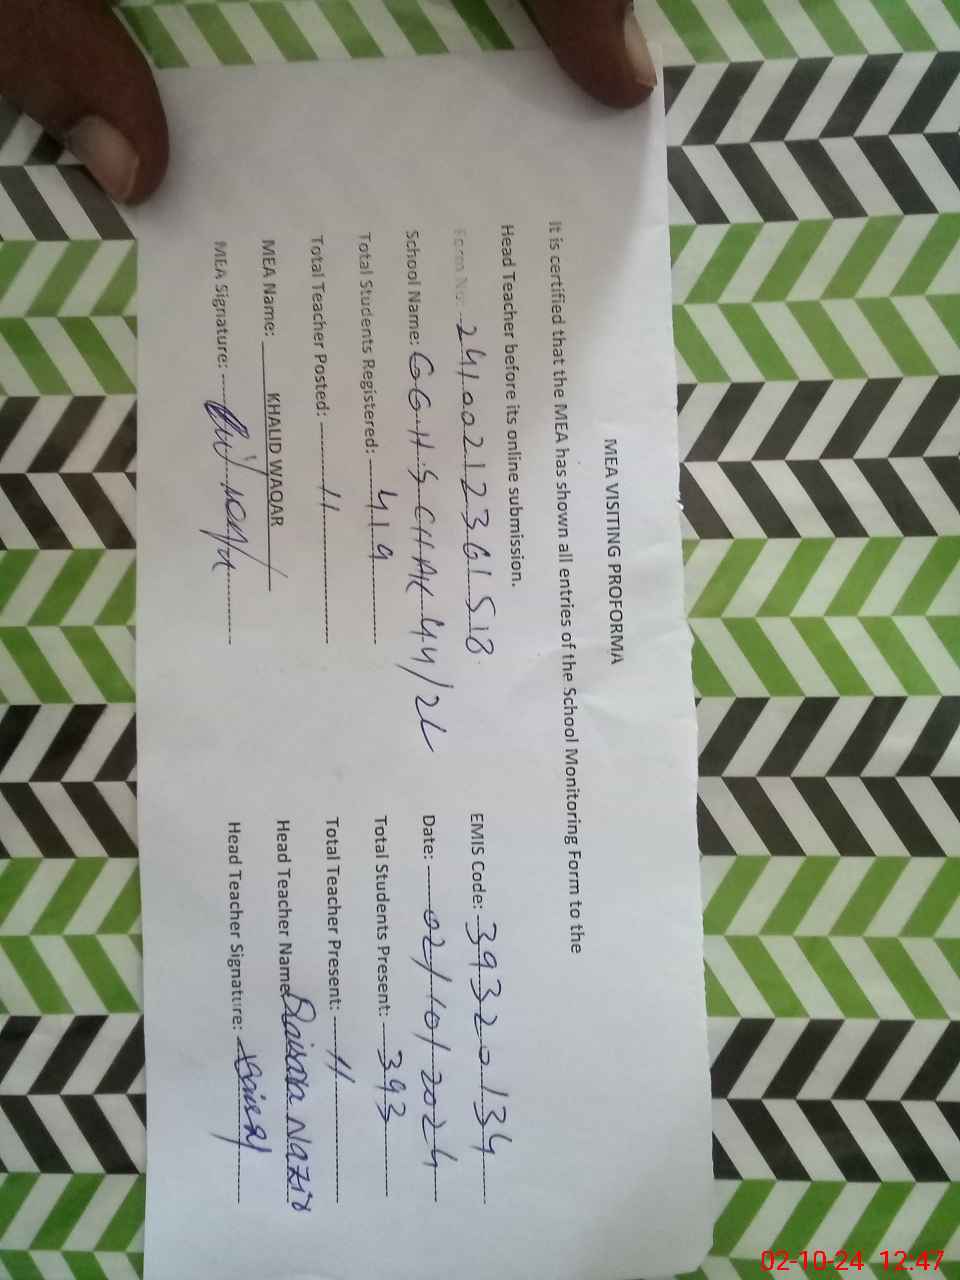 MEA VISITING PROFORMA
It is certified that the MEA has shown all entries of the School Monitoring Form to the
Head Teacher before its online submission.
Form No: 24100212361518 EMIS Code: 39320134
School Name: GGHS CHAK 44/2L Date: 02/10/2024
Total Students Registered: 419 Total Students Present: 393
Total Teacher Posted: 11 Total Teacher Present: 11
MEA Name: KHALID WAQAR Head Teacher Name Nazir
MEA Signature: Head Teacher Signature:
02-10-24 12:47